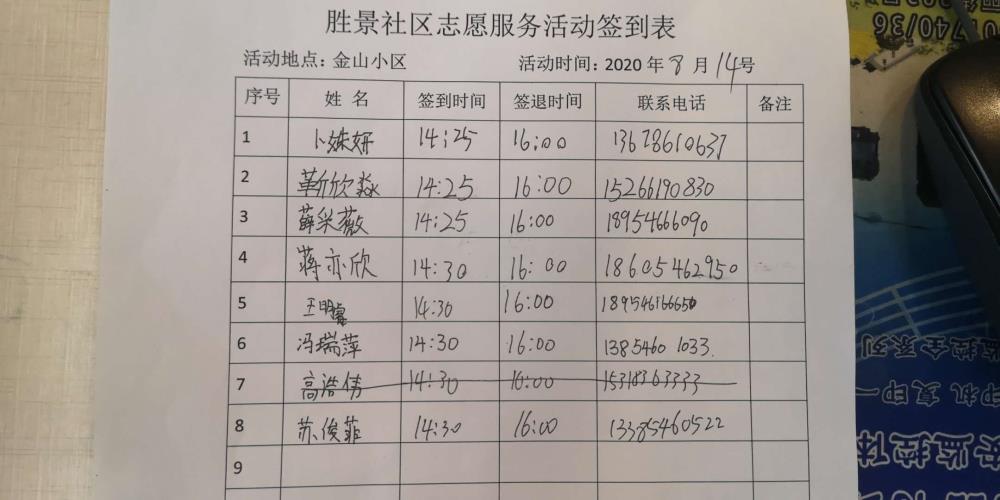 胜景社区志愿服务活动签到表
活动地点：金山小区 活动时间：2020 年 8 月 14号
序号 姓 名 签到时间 签退时间 联系电话 备注
1 卜姝妍 14:25 16:00 13678610637
2 靳欣淼 14:25 16:00 15266190830
3 薛采薇 14:25 16:00 18954666090
4 蒋亦欣 14:30 16:00 18605462950
5 王明睿 14:30 16:00
6 冯瑞萍 14:30 16:00 1385460 1033.
7 高浩伟 14:30 16:00 15318363333
8 苏俊菲 14:30 16:00 13385460522
9
740/36
监控全系列
印机 复印一
安监控体